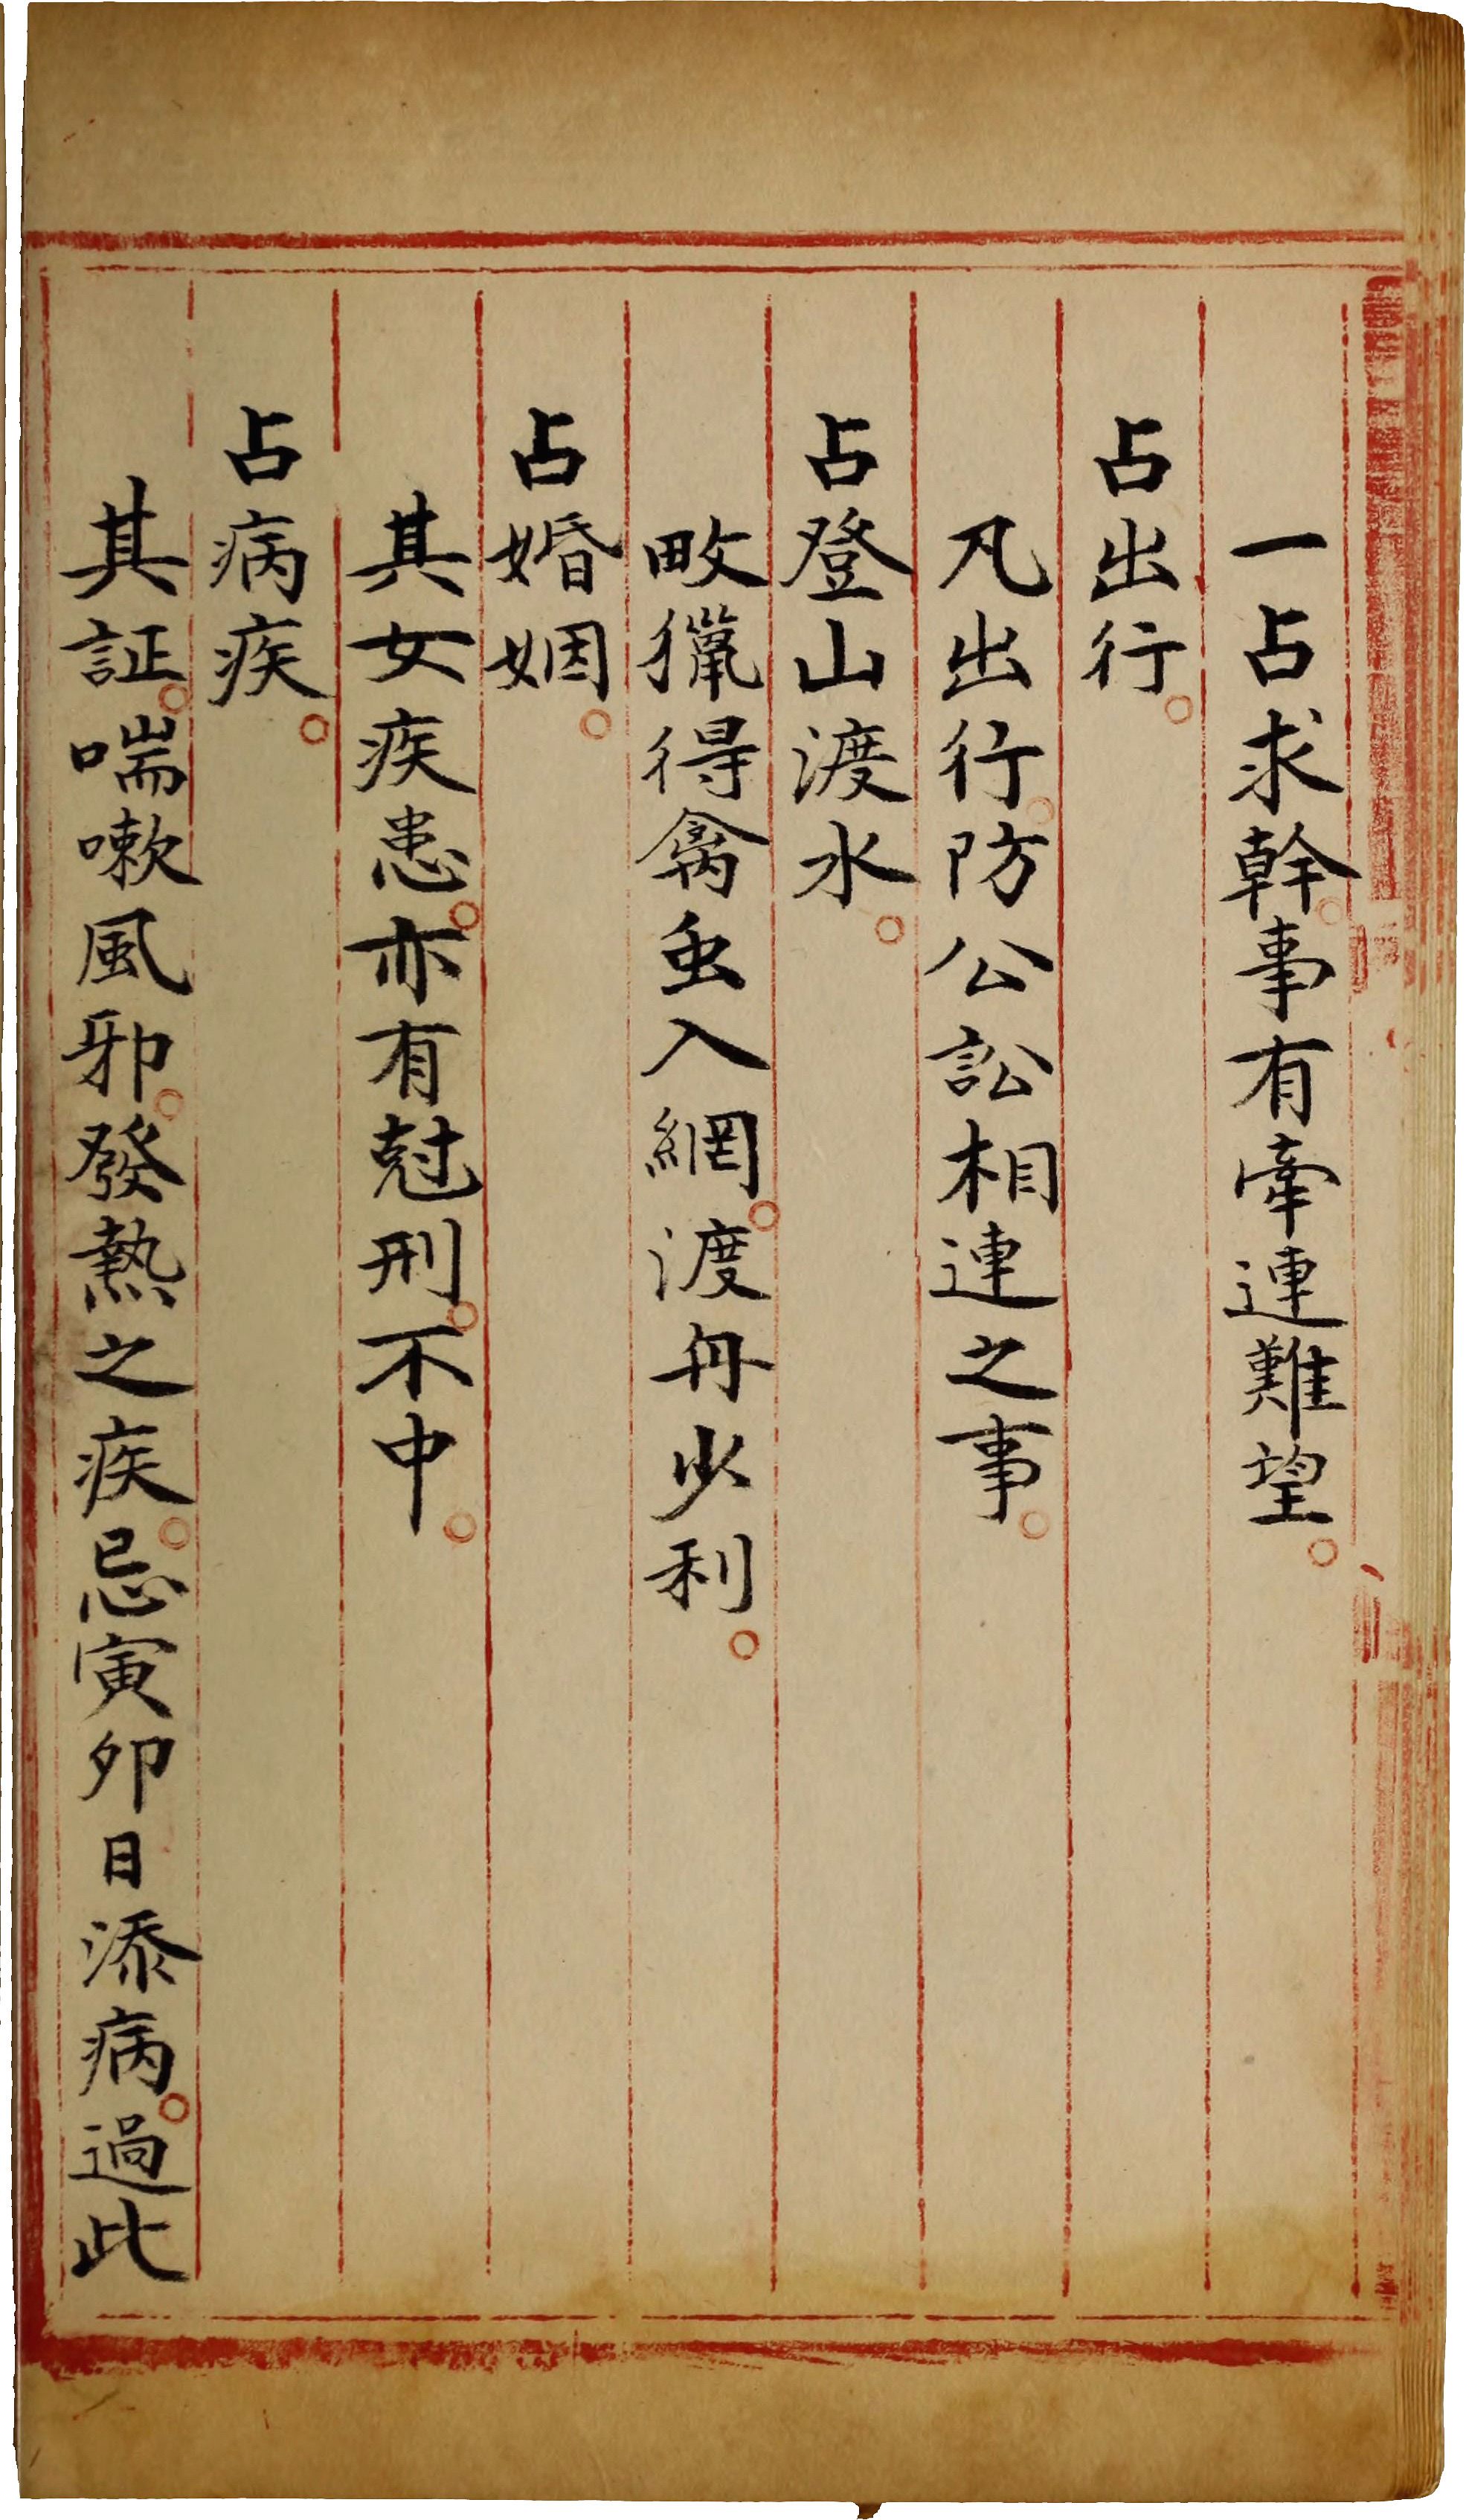 一占求幹。事有牽連難望。
占出行。
凡出行。防公訟相連之事。
占登山渡水。
畋獵得禽虫入網。渡舟少利。
占婚姻。
其女疾患。亦有尅刑。不中。
占病疾。
其証。喘嗽風邪。發熱之疾。忌寅卯日添病。過此